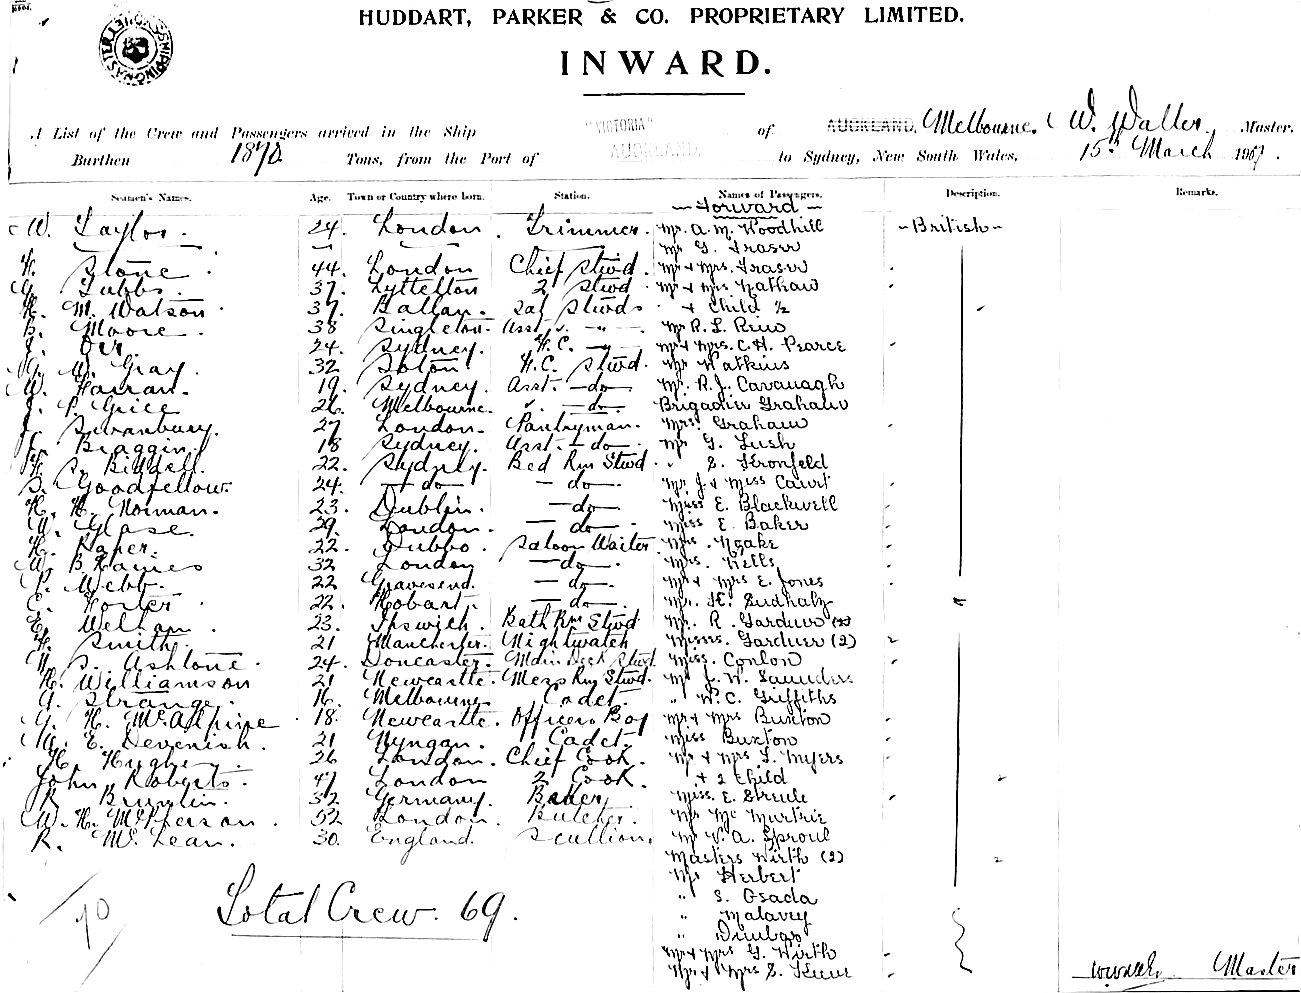 HUDDART, PARKER & CO. PROPRIETARY LIMITED.
INWARD.
A List of the Crew and Passengers arrived in the Ship "VICTORIA" of AUCKLAND, Melbourne, W. Waller, Master,
Burthen Tons, from the Port of AUCKLAND, to Sydney, New South Wales, 15th March 1907.
Seamen's Names. Age. Town or Country where born. Station. Names of Passengers. Description. Remarks.
— Forward —
W. Taylor. 24. London. Trimmer. Mr. A. M. Woodhill - British -
Mr G. Fraser
Stone 44. London Chief Stwd. Mr & Mrs. Fraser
Tubbs. 37. Lyttelton 2 Stwd Mr & Mrs Nathan
M. Watson 37. Ballan. Sal Stwds & Child ½
B. Moore 38 Singleton. Asst. Mr R. L.
Orr 24. Sydney. Mr & Mrs. C. H. Pearce
Gray. 32 Stwd. Mr Watkins
W. 19. Sydney. Asst. —do— Mr. R. J. Cavanagh
J. P. Grice 26 Melbourne. —do— Brigadier Graham
J. Swanbury. 27 London. Pantryman. Mrs. Graham
Braggin. 18 Sydney. Asst. —do— Mr G. Lush
Biddell. 22. Sydney. Bed Rm Stwd. " S. Kronfeld
Goodfellow. 24. —do— —do— Mr. J. & Miss
H. Norman. 23. Dublin. —do— Miss E. Blackwell
W. Glase. 29. London. —do— Miss E. Baker
22. Dubbo. Saloon Waiter Mrs. Ngake
W. B. 32 London —do— Mrs. Kells
P. Webb. 22 Gravesend. —do— Mr & Mrs E. Jones
E. 22. Hobart. —do— Mr. H.
Welham. 23. Ipswich. Bath Rm Stwd Mr. R. Gardner
Smith. 21 Manchester. Nightwatch Misses. Gardner (2)
S. Ashtone. 24. Doncaster. Main Deck Stwd. Miss. Conlon
H. Williamson 21 Newcastle. Mess Rm Stwd. Mr J. W. Saunders
G. Strange. 16. Melbourne Cadet. " W. C. Griffiths
G. H. McAlpine 18. Newcastle. Officers Boy Mr & Mrs Buxton
E. Devenish. 21 Nyngan. Cadet. Miss Buxton
H. Hughes. 26 London. Chief Cook. Mr & Mrs L. Myers
John Roberts. 47 London 2 Cook & 2 Child
R. 32 Germany. Baker Miss. E. Steele
W. H. McPherson 52 London. Butcher. Mrs McMurtrie
R. McLean. 30. England. Scullion. Mr A. Sproul
Masters Wirth (2)
Mrs Herbert
" S. Osada
" Malavey
" Dunbar
Mr & Mrs G. Wirth
Mr & Mrs S.
Total Crew. 69.
70
Master